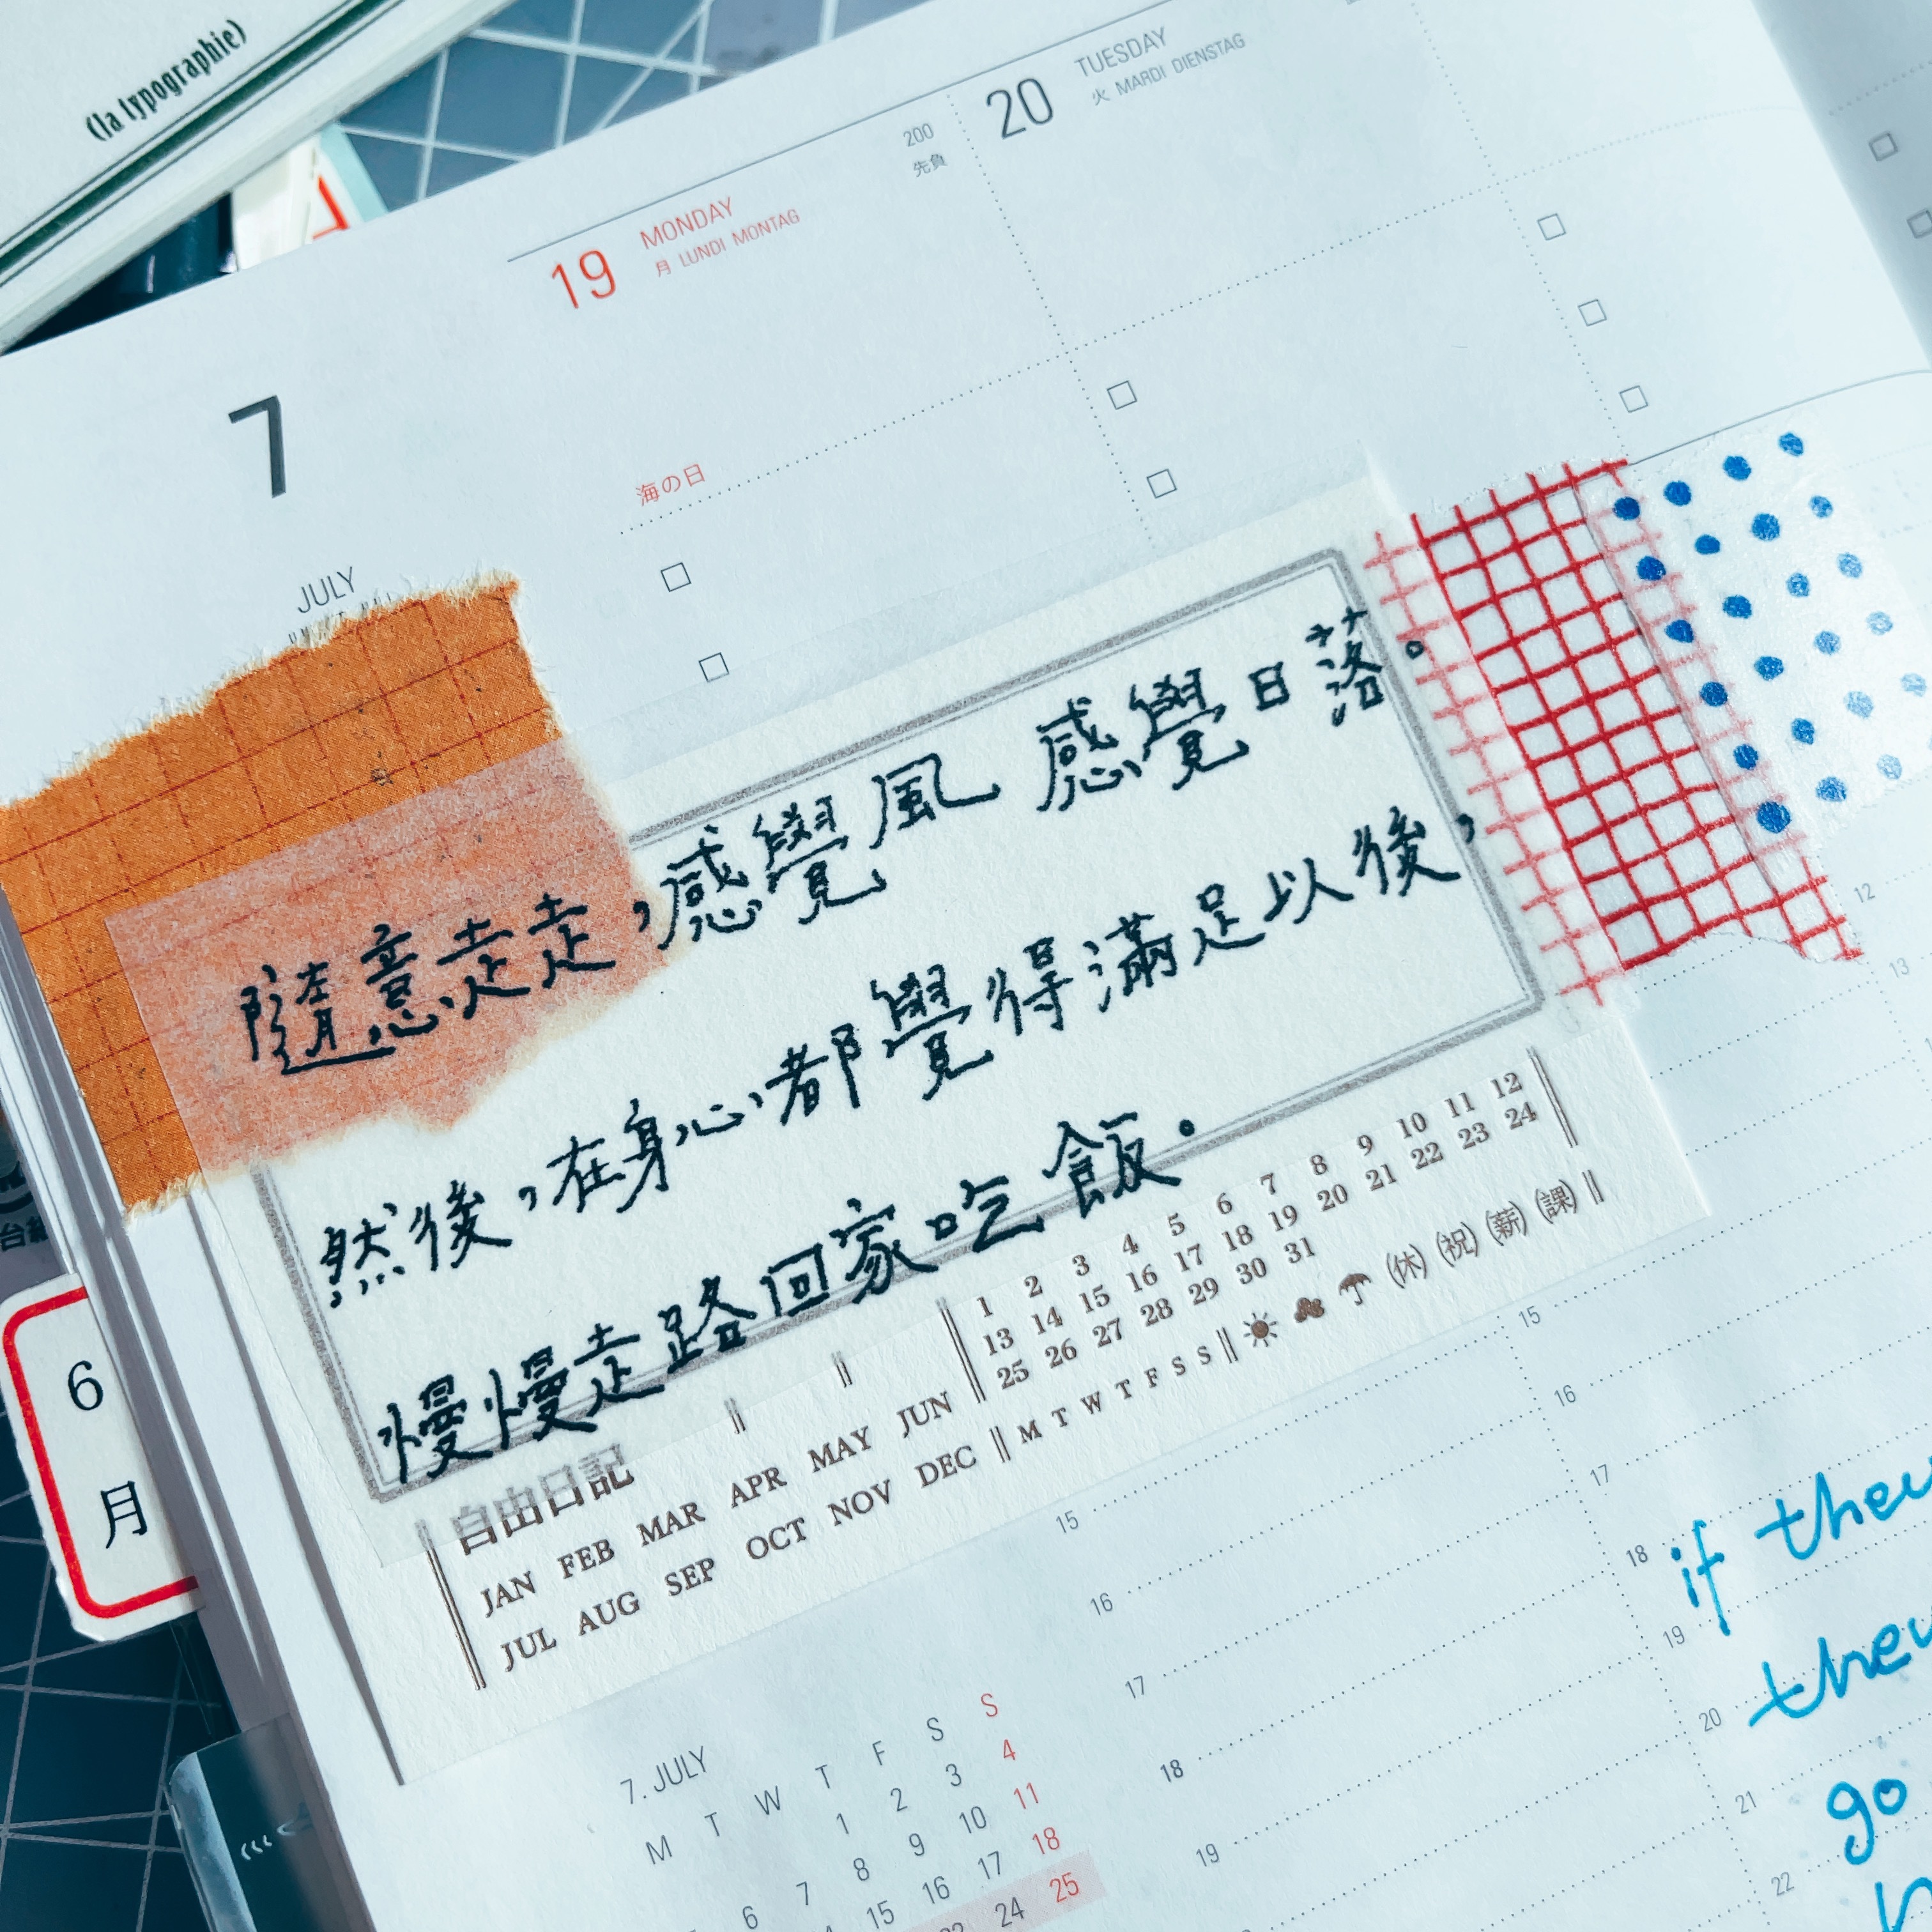 (la typographie)
20 TUESDAY
火 MARDI DIENSTAG
200
先負
19 MONDAY
月 LUNDI MONTAG
7
海の日
JULY
隨意走走，感覺風 感覺日落。
然後，在身心都覺得滿足以後，
慢慢走路回家吃飯。
自由日記
JAN FEB MAR APR MAY JUN
JUL AUG SEP OCT NOV DEC
1 2 3 4 5 6 7 8 9 10 11 12
13 14 15 16 17 18 19 20 21 22 23 24
25 26 27 28 29 30 31
M T W T F S S (休) (祝) (薪) (課)
6
月
台
12
13
15
16
17
18
19
15
16
17
18
19
20
21
22
if
go
7. JULY
M T W T F S S
1 2 3 4
6 7 8 9 10 11
15 16 17 18
24 25